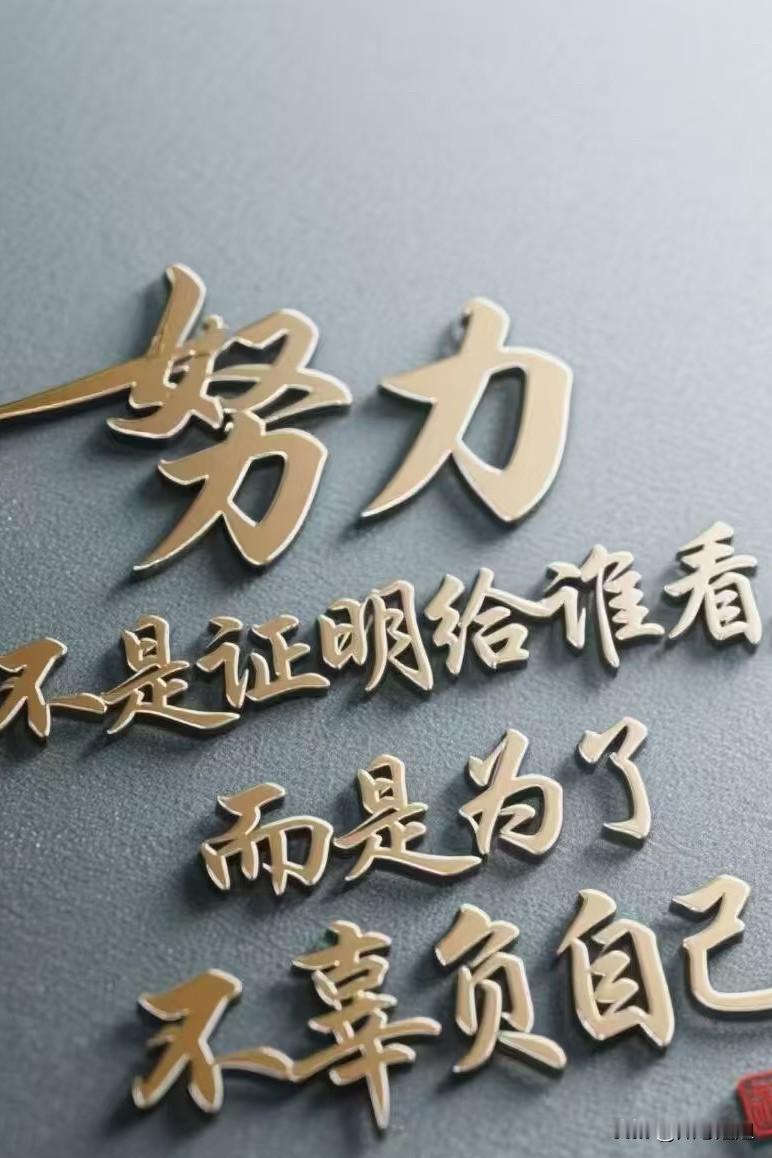 努力
不是证明给谁看
而是为了
不辜负自己